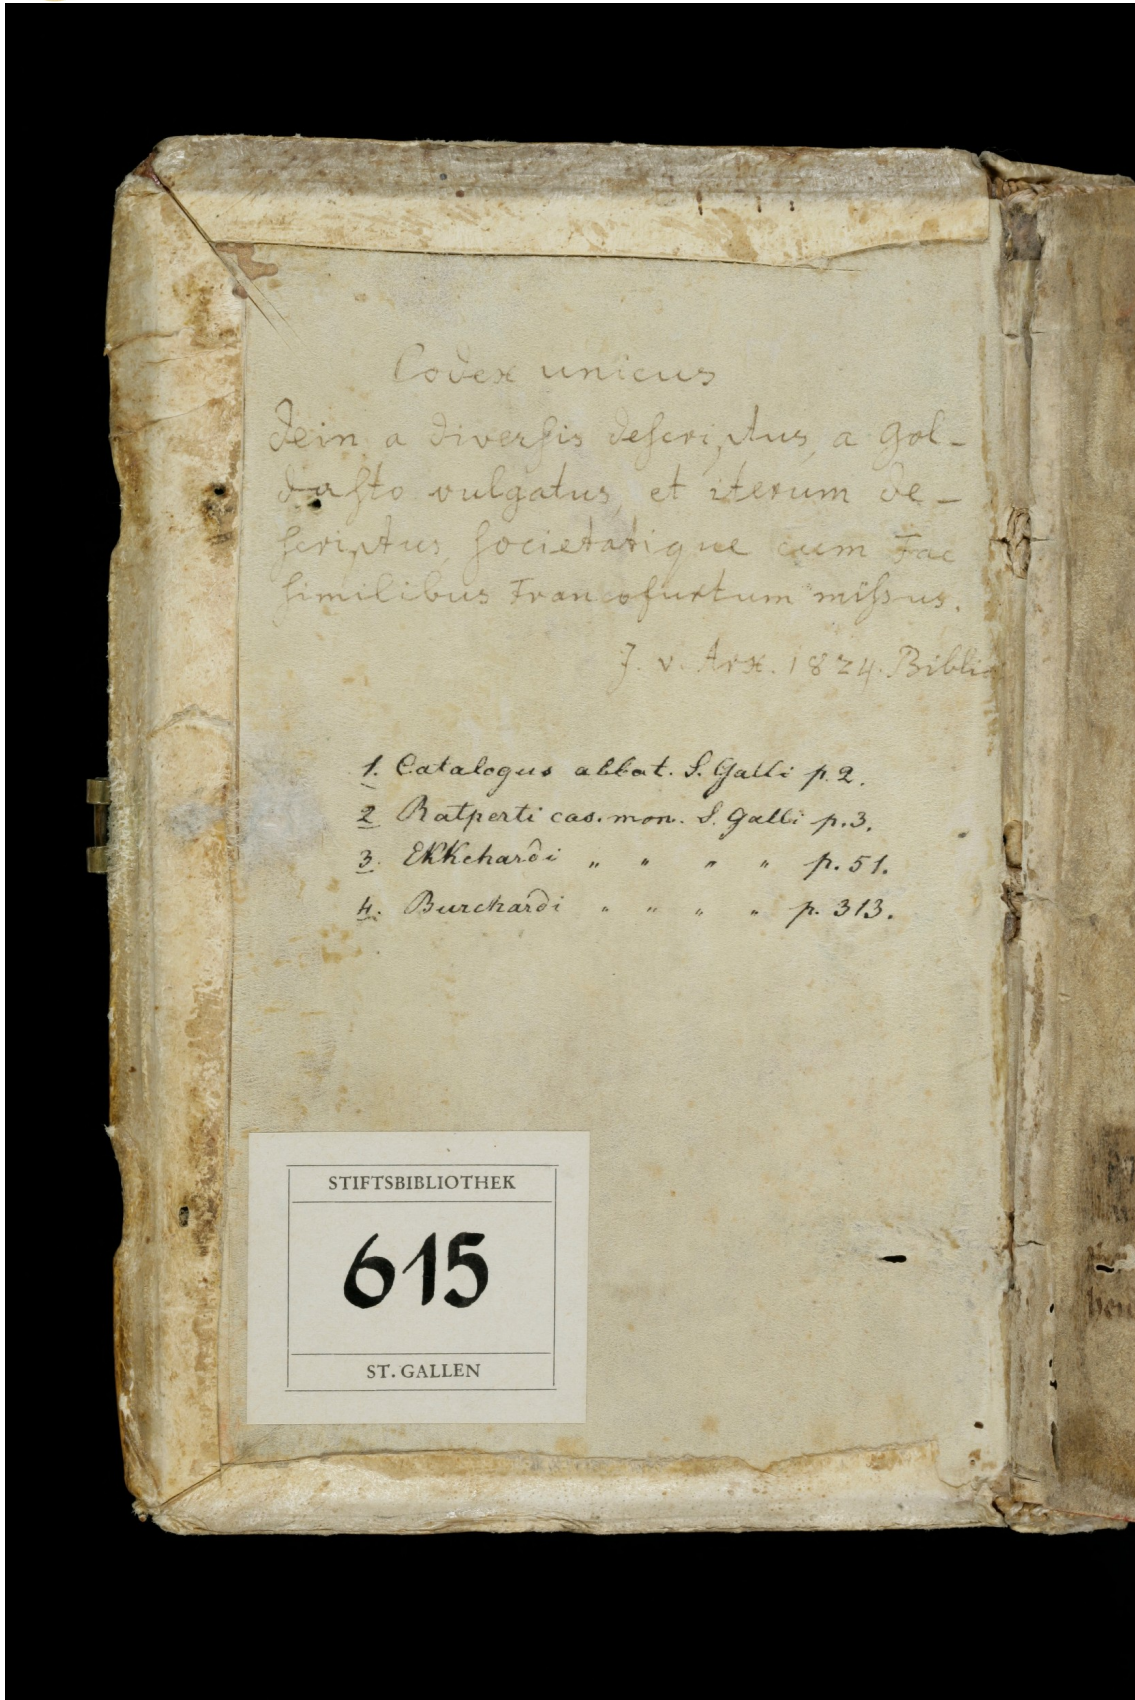 Codex unicus
dein a diversis descriptus, a Gol-
dasto vulgatus, et iterum de-
scriptus, societatique cum Fac
similibus Francofurtum missus.
J. v. Arx. 1824. Biblio
1. Catalogus abbat. S. Galli p. 2.
2 Ratperti cas. mon. S. Galli p. 3.
3. Ekkehardi " " " " p. 51.
4. Burchardi " " " " p. 313.
STIFTSBIBLIOTHEK
615
ST. GALLEN